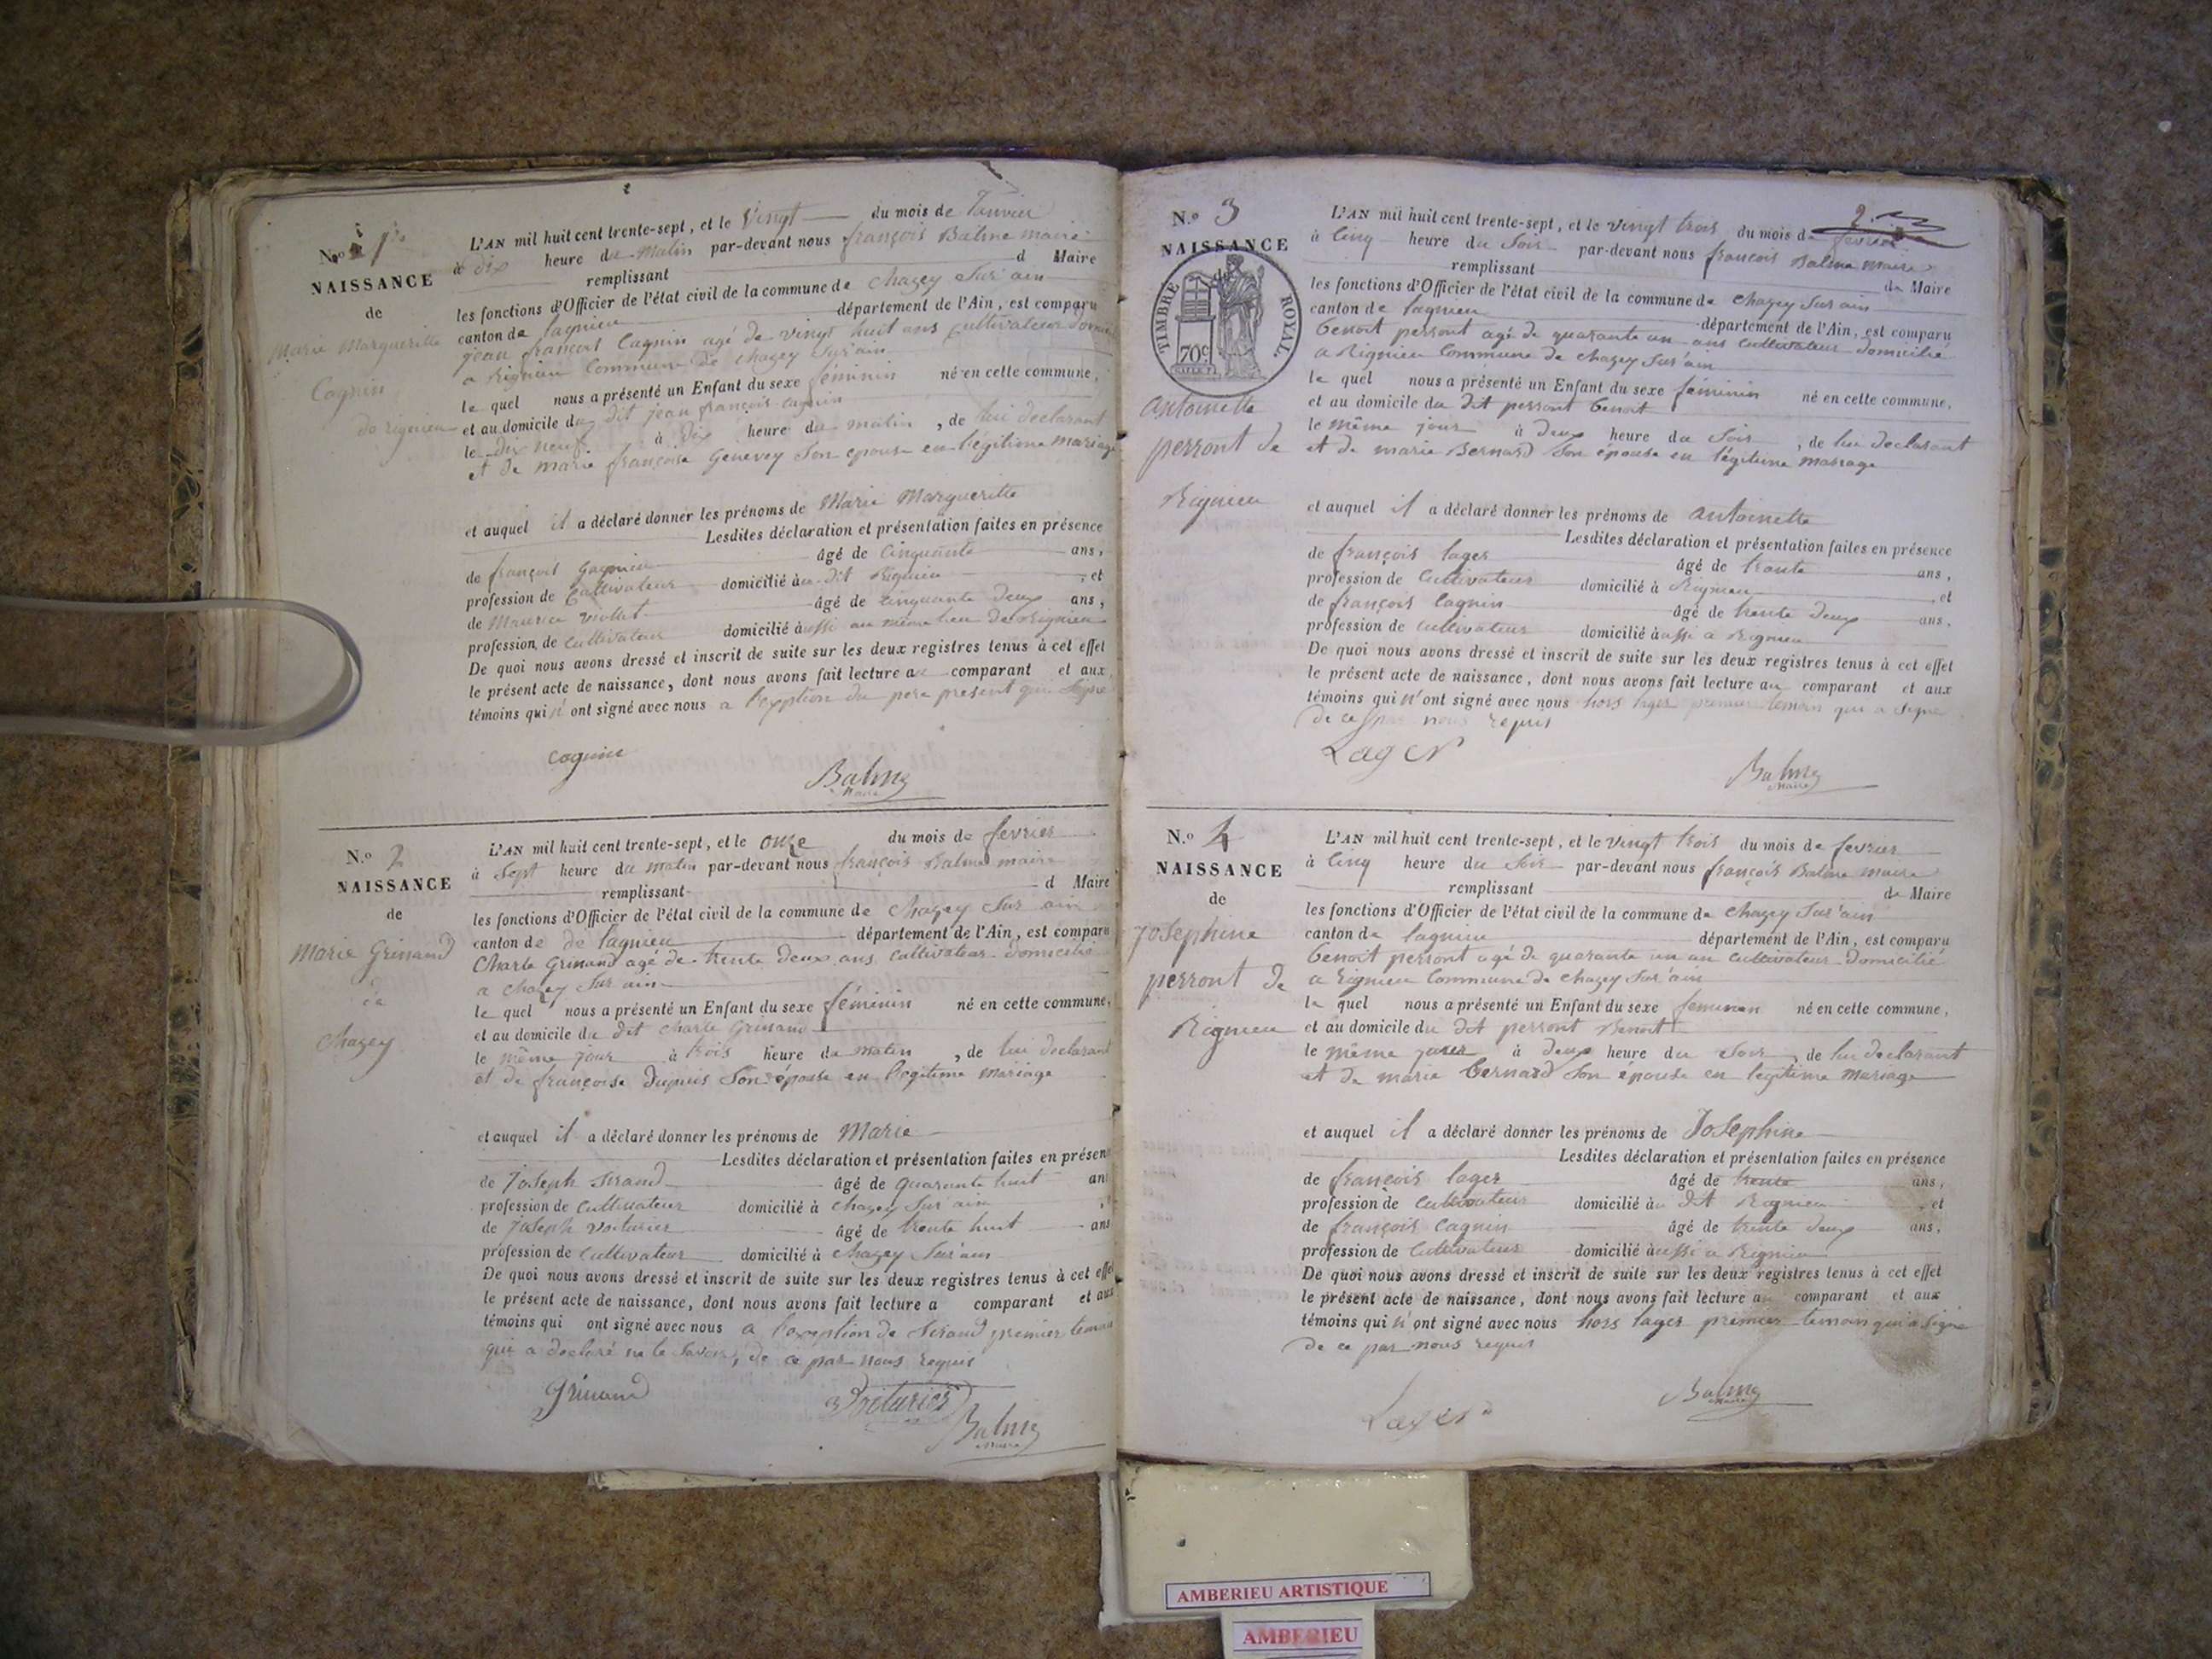 N.º 1
NAISSANCE
de
Marie Margueritte
Cognin
de rignieu
L'AN mil huit cent trente-sept, et le Vingt du mois de Janvier
à dix heure du matin par-devant nous françois Balme maire
remplissant d Maire
les fonctions d'Officier de l'état civil de la commune de chazey Sur ain
canton de lagnieu département de l'Ain, est comparu
jean françois Cognin agé de vingt huit ans Cultivateur
a Rignieu Commune de chazey Sur'ain
le quel nous a présenté un Enfant du sexe féminin né en cette commune,
et au domicile du dit jean françois cognin
le dix neuf à dix heure du matin, de lui declarant
et de marie françoise Genevey Son epouse en légitime mariage
et auquel il a déclaré donner les prénoms de Marie Marguerite
Lesdites déclaration et présentation faites en présence
de françois âgé de Cinquante ans,
profession de Cultivateur domicilié au dit Rignieu, et
de Maurice Viollet âgé de cinquante deux ans,
profession de Cultivateur domicilié aussi au même lieu de Rignieu
De quoi nous avons dressé et inscrit de suite sur les deux registres tenus à cet effet
le présent acte de naissance, dont nous avons fait lecture au comparant et aux
témoins qui n'ont signé avec nous a l'exption du pere present qui signe
cognin
Balme
Maire
N.º 2
NAISSANCE
de
Marie Grinand
de
chazey
L'AN mil huit cent trente-sept, et le onze du mois de fevrier
à Sept heure du matin par-devant nous françois Balme maire
remplissant d Maire
les fonctions d'Officier de l'état civil de la commune de chazey Sur ain
canton de de lagnieu département de l'Ain, est comparu
Charle Grinand agé de trente deux ans Cultivateur domicilié
a chazey Sur ain
le quel nous a présenté un Enfant du sexe féminin né en cette commune,
et au domicile du dit charle Grinand
le même jour à trois heure du matin, de lui declarant
et de françoise Dupuis Son épouse en legitime mariage
et auquel il a déclaré donner les prénoms de Marie
Lesdites déclaration et présentation faites en présen
de Joseph Siraud âgé de quarante huit an
profession de Cultivateur domicilié à chazey Sur ain
de Joseph Voiturier âgé de trente huit ans
profession de Cultivateur domicilié à chazey Sur'ain
De quoi nous avons dressé et inscrit de suite sur les deux registres tenus à cet effet
le présent acte de naissance, dont nous avons fait lecture a comparant et aux
témoins qui ont signé avec nous a l'exception de Siraud premier temoin
qui a declaré ne le Savoir, de ce par nous requis
Grinand
Voiturier
Balme
Maire
2
N.º 3
NAISSANCE
de
TIMBRE ROYAL
70c
antoinette
perront de
Rignieu
L'AN mil huit cent trente-sept, et le vingt trois du mois de fevrier
à Cinq heure du Soir par-devant nous françois Balme maire
remplissant de Maire
les fonctions d'Officier de l'état civil de la commune de chazey Sur ain
canton de lagnieu département de l'Ain, est comparu
benoit perront agé de quarante un ans Cultivateur domicilié
a Rignieu Commune de chazey Sur'ain
le quel nous a présenté un Enfant du sexe féminin né en cette commune,
et au domicile du dit perront benoit
le même jour à deux heure du Soir, de lui declarant
et de marie Bernard Son épouse en légitime mariage
et auquel il a déclaré donner les prénoms de antoinette
Lesdites déclaration et présentation faites en présence
de françois lager âgé de trente ans,
profession de Cultivateur domicilié à Rignieu, et
de françois Cognin âgé de trente deux ans,
profession de Cultivateur domicilié aussi a Rignieu
De quoi nous avons dressé et inscrit de suite sur les deux registres tenus à cet effet
le présent acte de naissance, dont nous avons fait lecture au comparant et aux
témoins qui n'ont signé avec nous hors lager premier temoin qui a signé
de ce par nous requis
Lager
Balme
Maire
N.º 4
NAISSANCE
de
Josephine
perront de
Rignieu
L'AN mil huit cent trente-sept, et le vingt trois du mois de fevrier
à Cinq heure du Soir par-devant nous françois Balme maire
remplissant de Maire
les fonctions d'Officier de l'état civil de la commune de chazey Sur'ain
canton de lagnieu département de l'Ain, est comparu
benoit perront agé de quarante un an Cultivateur domicilié
a Rignieu Commune de chazey Sur'ain
le quel nous a présenté un Enfant du sexe feminin né en cette commune,
et au domicile du dit perront Benoit
le même jour à deux heure du Soir, de lui declarant
et de marie bernard Son épouse en legitime mariage
et auquel il a déclaré donner les prénoms de Josephine
Lesdites déclaration et présentation faites en présence
de françois lager âgé de trente ans,
profession de Cultivateur domicilié au dit Rignieu, et
de françois Cagnin âgé de trente deux ans,
profession de Cultivateur domicilié aussi a Rignieu
De quoi nous avons dressé et inscrit de suite sur les deux registres tenus à cet effet
le présent acte de naissance, dont nous avons fait lecture au comparant et aux
témoins qui n'ont signé avec nous hors lager premier temoin qui a Signé
de ce par nous requis
Lager
Balme
Maire
AMBERIEU ARTISTIQUE
AMBERIEU